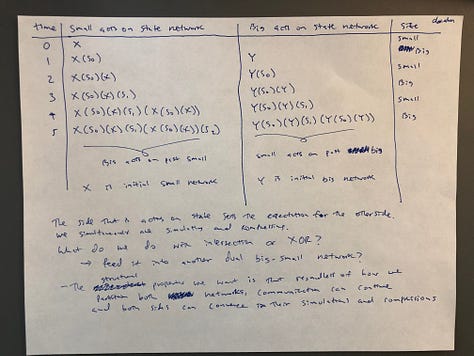 time Small acts on state network Big acts on state network side
0 X small
1 X(S₀) Y Big
2 X(S₀)(X) Y(S₀) small
3 X(S₀)(X)(S₁) Y(S₀)(Y) Big
4 X(S₀)(X)(S₁)(X(S₀)(X)) Y(S₀)(Y)(S₁) small
5 X(S₀)(X)(S₁)(X(S₀)(X))(S₂) Y(S₀)(Y)(S₁)(Y(S₀)(Y)) Big
Big acts on past small small acts on past big
X is initial small network Y is initial big network
The side that is acting on state sets the expectation for the other side.
we simultaneously are simulating and compressing.
What do we do with intersection or XOR?
→ feed it into another dual big-small network?
structural
- The property we want is that regardless of how we
partition both networks, communication can continue
and both sides can converge in their simulations and compressions